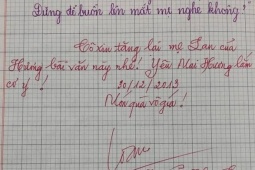 Đừng để buồn lên mắt mẹ nghe không!
Cô xin tặng lại mẹ Lan của
Hương bài văn này nhé! Yêu Mai Hương lắm
cơ ý!
20/12/2013
Món quà vô giá!
Loan